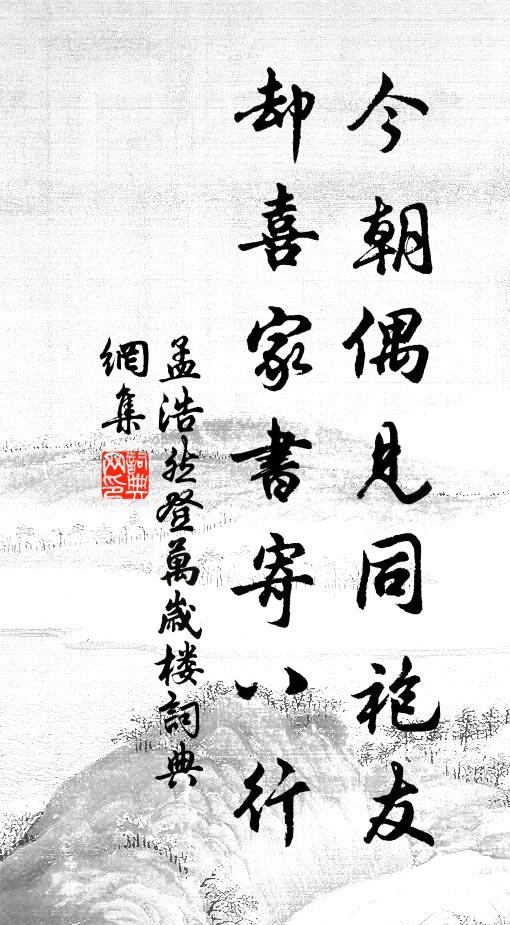 今朝偶見同袍友
却喜家書寄八行
孟浩然登萬歲楼詞典
網集
詞典網印